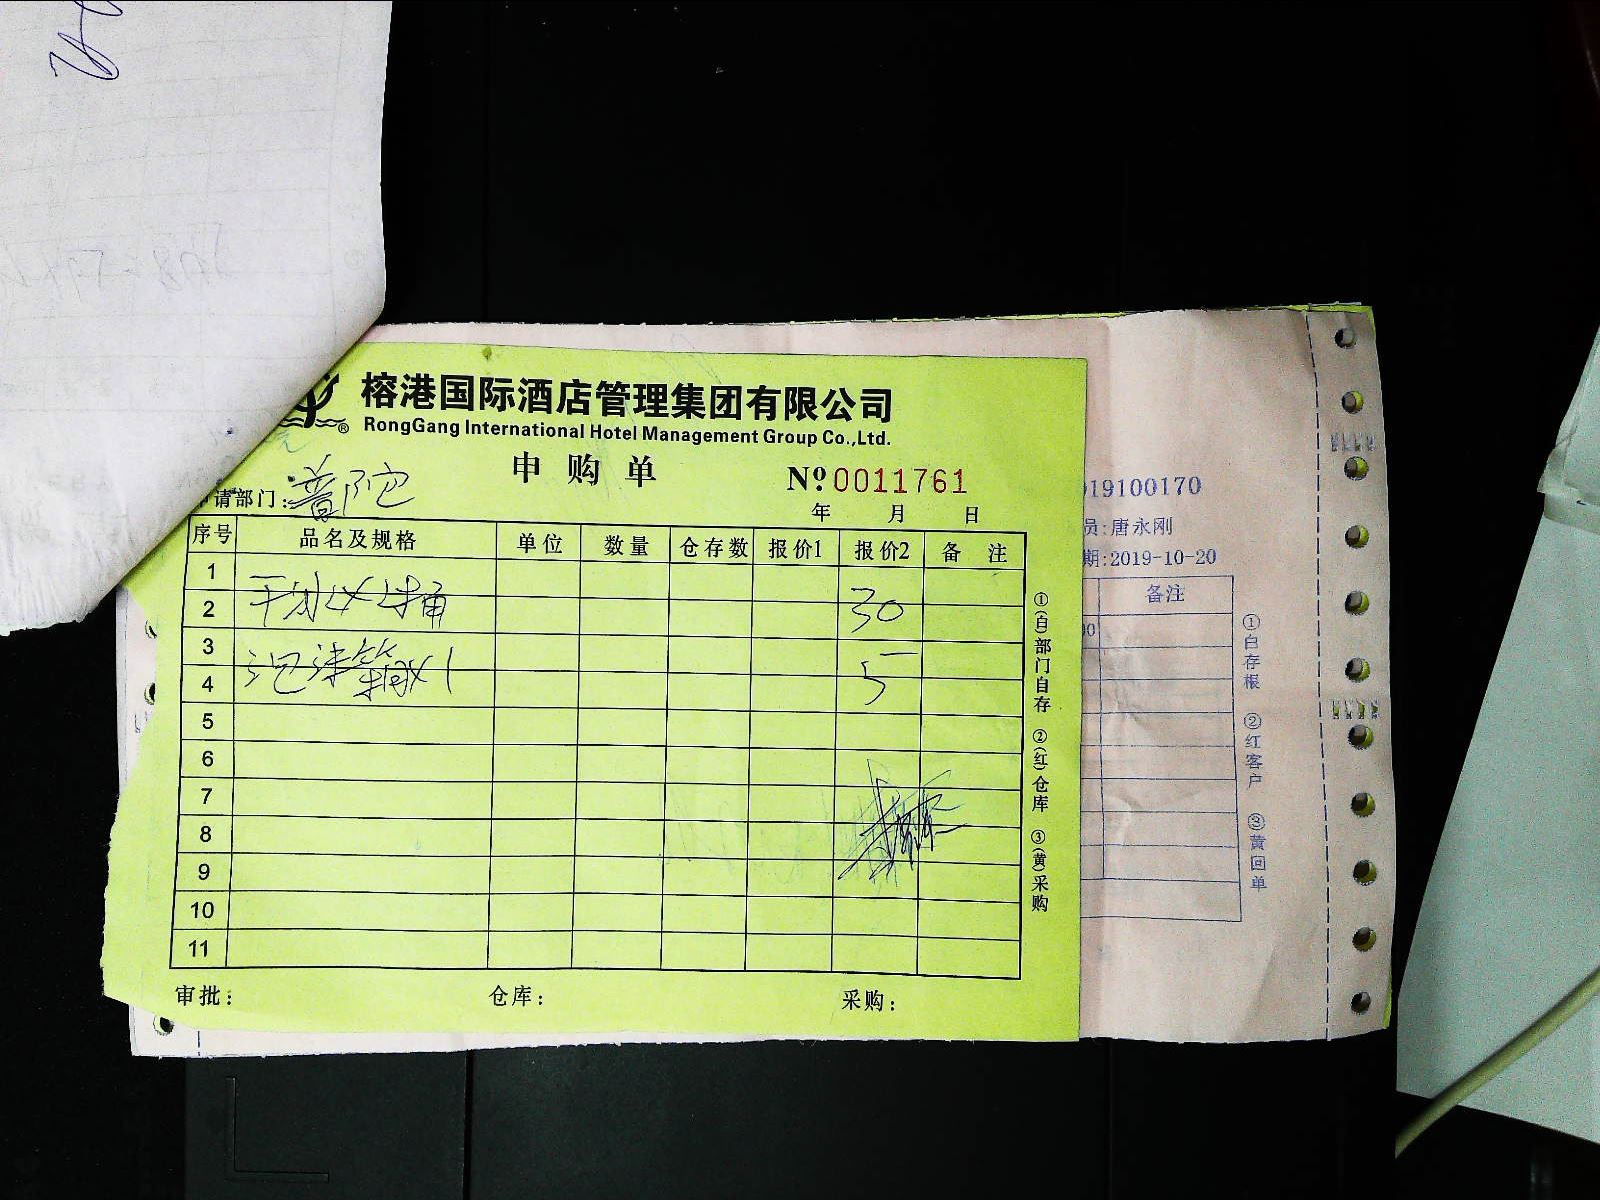 榕港国际酒店管理集团有限公司
®
RongGang International Hotel Management Group Co.,Ltd.
申购单
Nº 0011761
请部门: 普陀
年 月 日
序号 品名及规格 单位 数量 仓存数 报价1 报价2 备 注
1
2 桶 30
3
4 泡沫箱×1 5
5
6
7
8
9
10
11
审批: 仓库: 采购:
①(白)部门自存 ②(红)仓库 ③(黄)采购
19100170
员:唐永刚
期:2019-10-20
备注
①白存根 ②红客户 ③黄回单